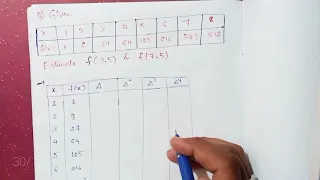 Given
x 1 2 3 4 5 6 7 8
f(x) 1 8 27 64 125 216 343 512
Estimate f(3.5) & f(7.5)
x f(x) Δ Δ² Δ³ Δ⁴
1 1
2 8
3 27
4 64
5 125
6 216
30/